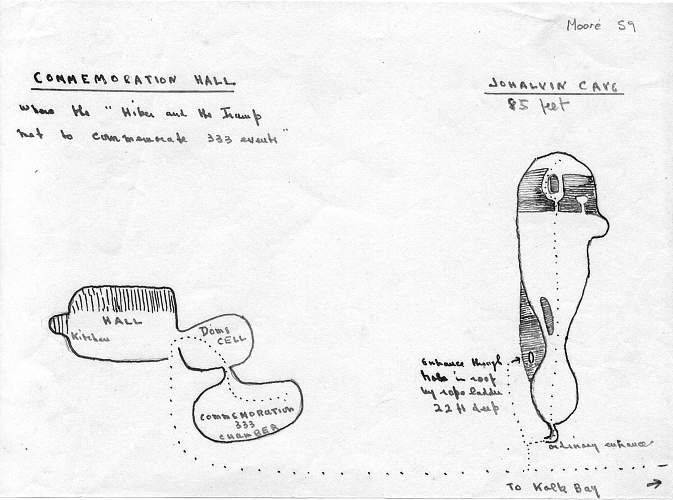 Moore 59
COMMEMORATION HALL
where the "Hiker and the Tramp
met to commemorate 333 events"
JOHALVIN CAVE
85 feet
HALL
Kitchen
Doms
CELL
COMMEMORATION
333
CHAMBER
Entrance through
hole in roof
by rope ladder
22 ft deep
ordinary entrance
To Kalk Bay